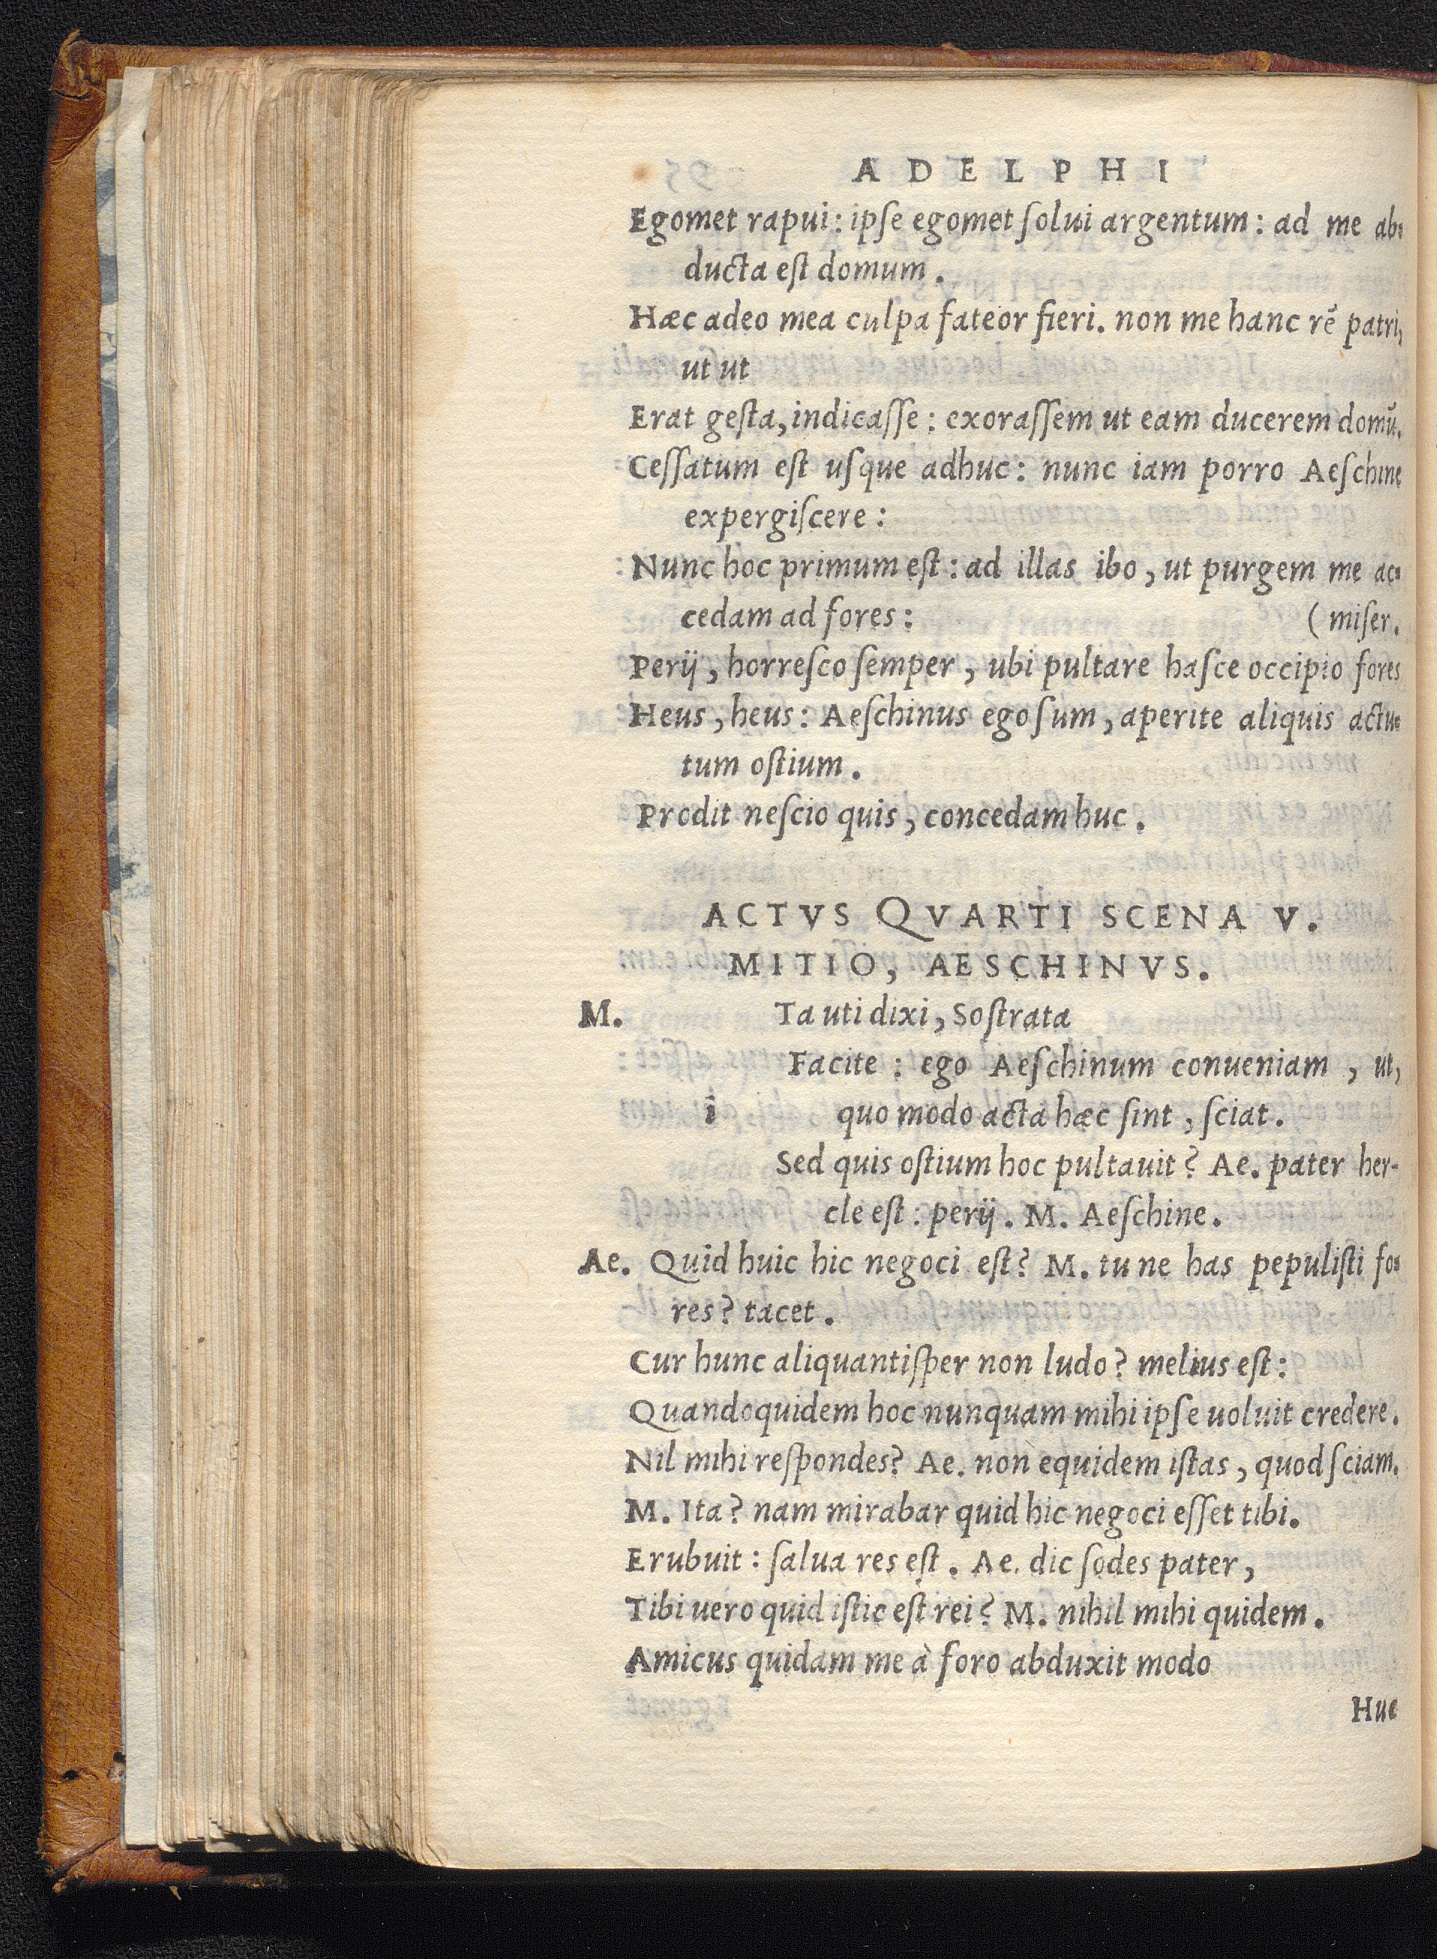 ADELPHI
Egomet rapui: ipſe egomet ſolui argentum: ad me ab-
ducta eſt domum.
Hæc adeo mea culpa fateor fieri. non me hanc rẽ patri,
ut ut
Erat geſta, indicaſſe: exoraſſem ut eam ducerem domũ.
Ceſſatum eſt uſque adhuc: nunc iam porro Aeſchine
expergiſcere:
Nunc hoc primum eſt: ad illas ibo, ut purgem me ac-
cedam ad fores: (miſer.
Perij, horreſco ſemper, ubi pultare haſce occipio fores
Heus, heus: Aeſchinus ego ſum, aperite aliquis actu-
tum oſtium.
Prodit neſcio quis, concedam huc.
ACTVS QVARTI SCENA V.
MITIO, AESCHINVS.
M. Ta uti dixi, Soſtrata
Facite: ego Aeſchinum conueniam, ut,
i quo modo acta hæc ſint, ſciat.
Sed quis oſtium hoc pultauit? Ae. pater her-
cle eſt: perij. M. Aeſchine.
Ae. Quid huic hic negoci eſt? M. tu ne has pepuliſti fo-
res? tacet.
Cur hunc aliquantiſper non ludo? melius eſt:
Quandoquidem hoc nunquam mihi ipſe uoluit credere.
Nil mihi reſpondes? Ae. non equidem iſtas, quod ſciam.
M. Ita? nam mirabar quid hic negoci eſſet tibi.
Erubuit: ſalua res eſt. Ae. dic ſodes pater,
Tibi uero quid iſtic eſt rei? M. nihil mihi quidem.
Amicus quidam me à foro abduxit modo
Huc